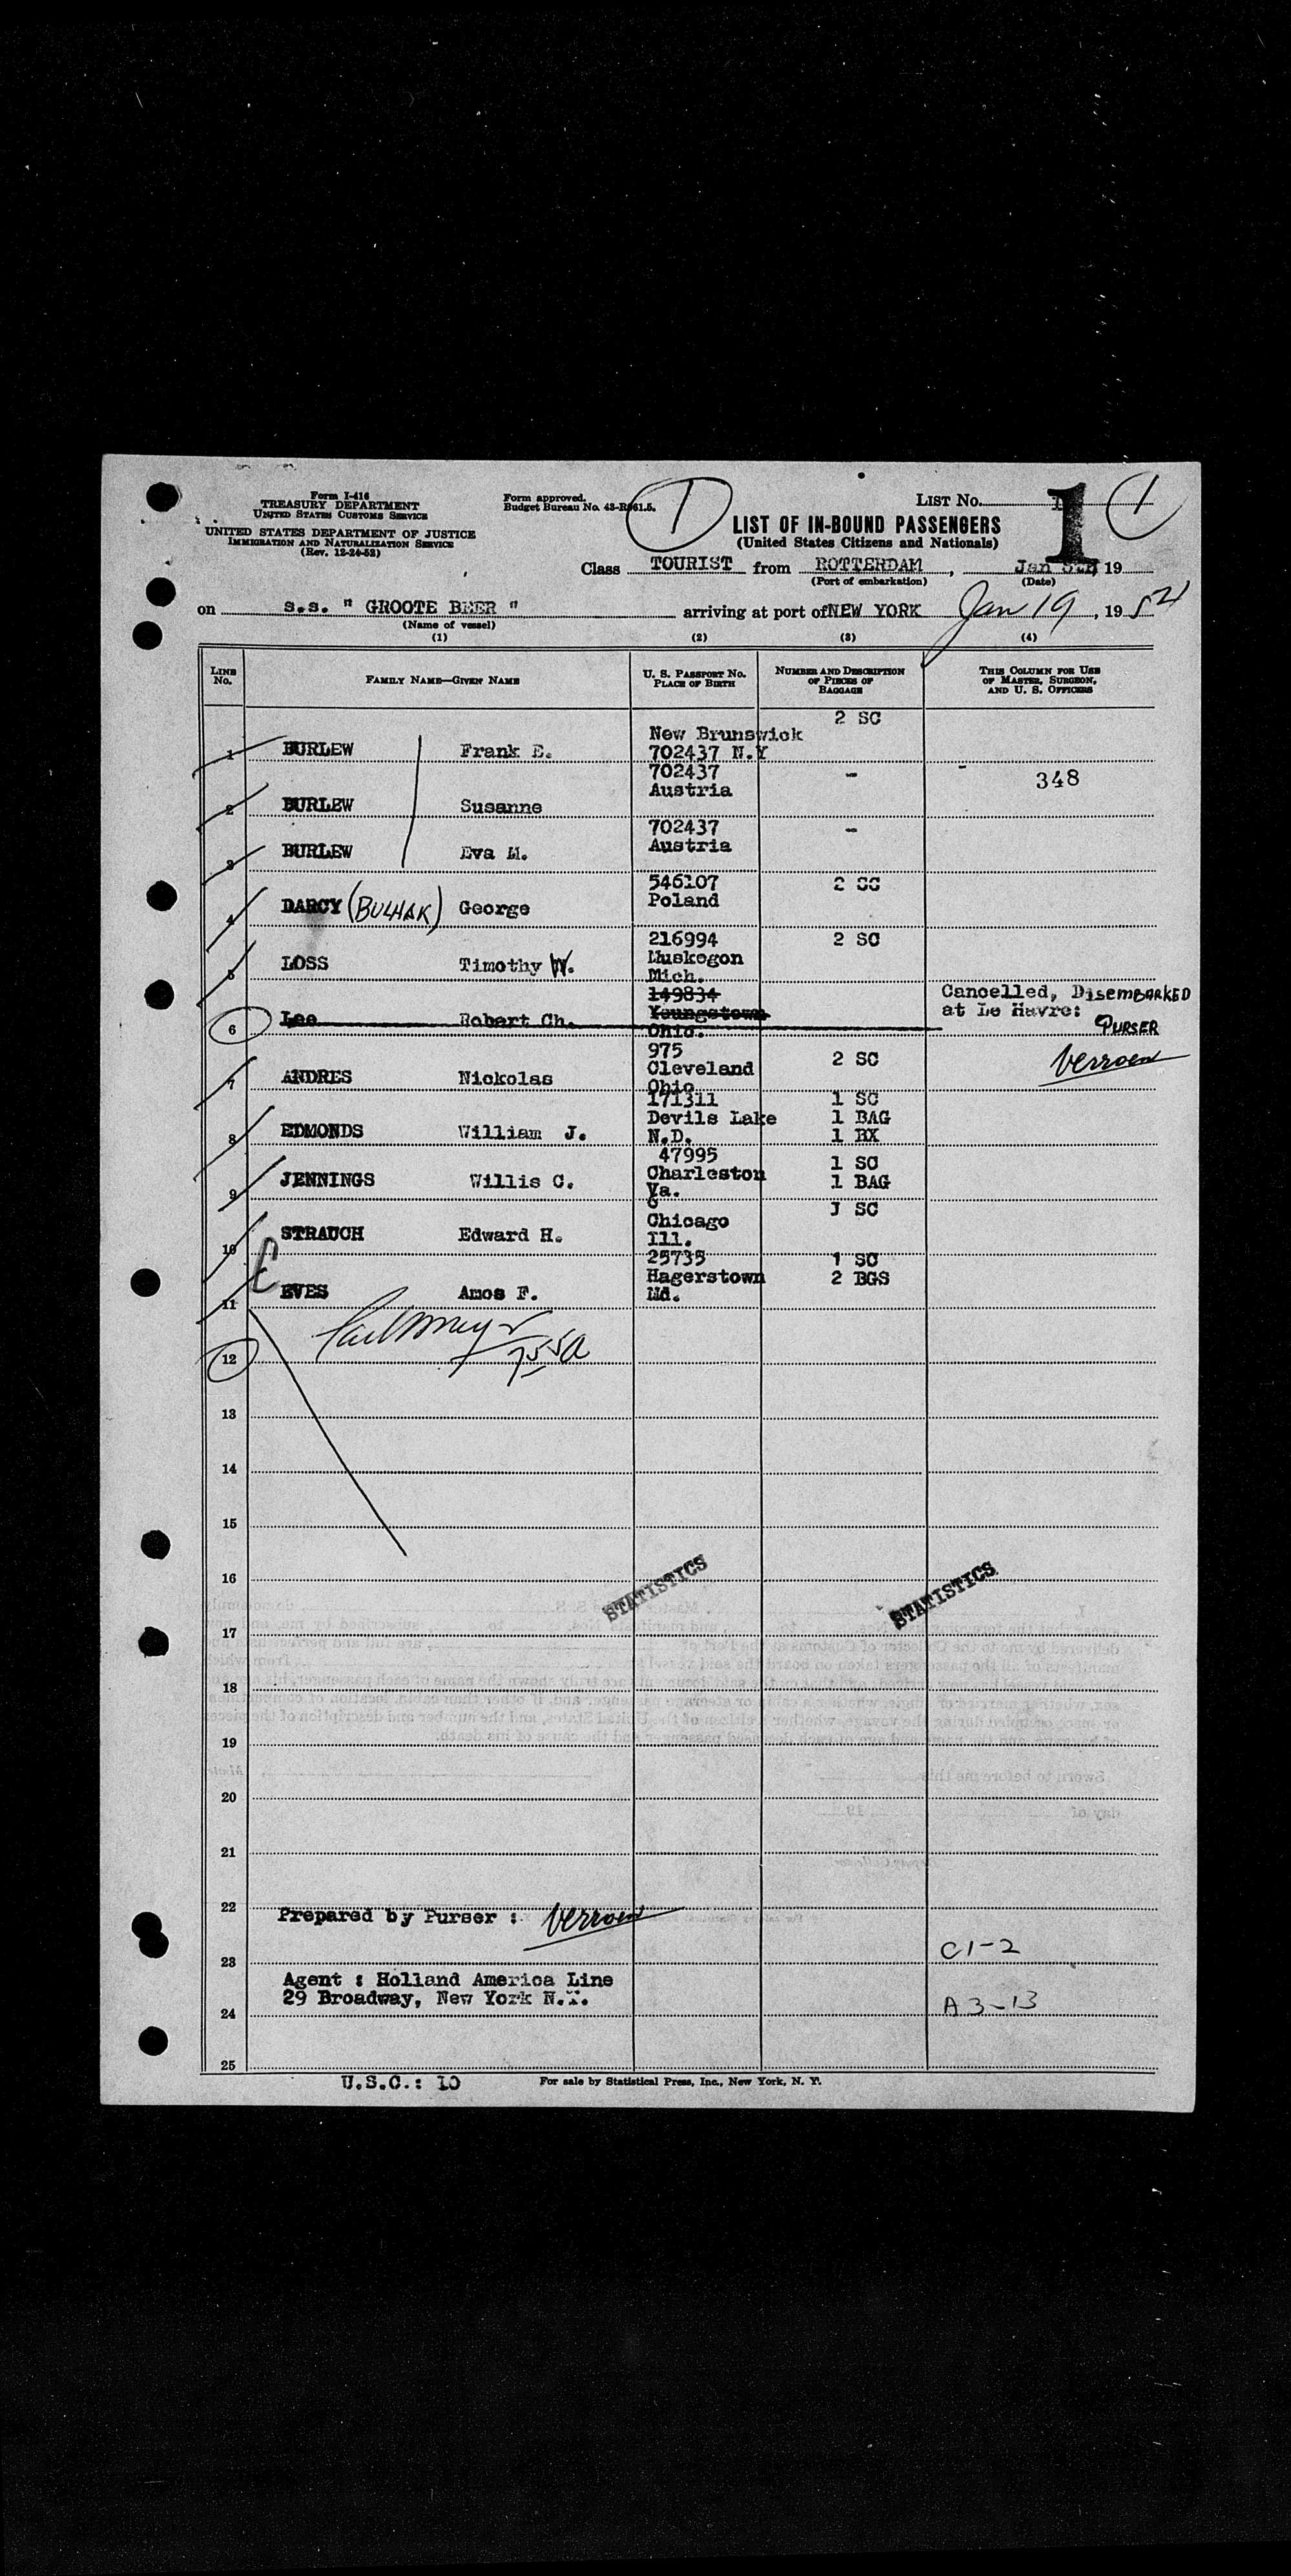 Form I-416
TREASURY DEPARTMENT
UNITED STATES CUSTOMS SERVICE
UNITED STATES DEPARTMENT OF JUSTICE
IMMIGRATION AND NATURALIZATION SERVICE
(Rev. 12-24-52)
Form approved.
Budget Bureau No. 43-R061.5.
1
LIST NO. 1
1
LIST OF IN-BOUND PASSENGERS
(United States Citizens and Nationals)
Class TOURIST from ROTTERDAM, Jan 19
(Port of embarkation) (Date)
on s.s. " GROOTE BEER " arriving at port of NEW YORK Jan 19, 1954
(Name of vessel)
(1) (2) (3) (4)
LINE NO. FAMILY NAME—GIVEN NAME U. S. PASSPORT NO. PLACE OF BIRTH NUMBER AND DESCRIPTION OF PIECES OF BAGGAGE THIS COLUMN FOR USE OF MASTER, SURGEON, AND U. S. OFFICERS
1 BURLEW Frank E. New Brunswick 702437 N.Y 2 SC
2 BURLEW Susanne 702437 Austria - 348
3 BURLEW Eva M. 702437 Austria -
4 DARCY (BULHAK) George 546107 Poland 2 SC
5 LOSS Timothy W. 216994 Muskegon Mich. 2 SC
6 Lee Robert Ch. 149834 Youngstown Ohio. Cancelled, DISEMBARKED at Le Havre: PURSER
Verroen
7 ANDRES Nickolas 975 Cleveland Ohio 2 SC
8 EDMONDS William J. 171311 Devils Lake N.D. 1 SC 1 BAG 1 BX
9 JENNINGS Willis C. 47995 Charleston Va. 1 SC 1 BAG
10 STRAUCH Edward H. Chicago Ill. SC
11 EVES Amos F. 25735 Hagerstown Md. 1 SC 2 BGS
12
13
14
15
16
STATISTICS STATISTICS
17
18
19
20
21
22 Prepared by Purser : Verroen
23 C1-2
Agent : Holland America Line
29 Broadway, New York N.Y.
24 A 3-13
25
U.S.C.: 10
For sale by Statistical Press, Inc., New York, N. Y.